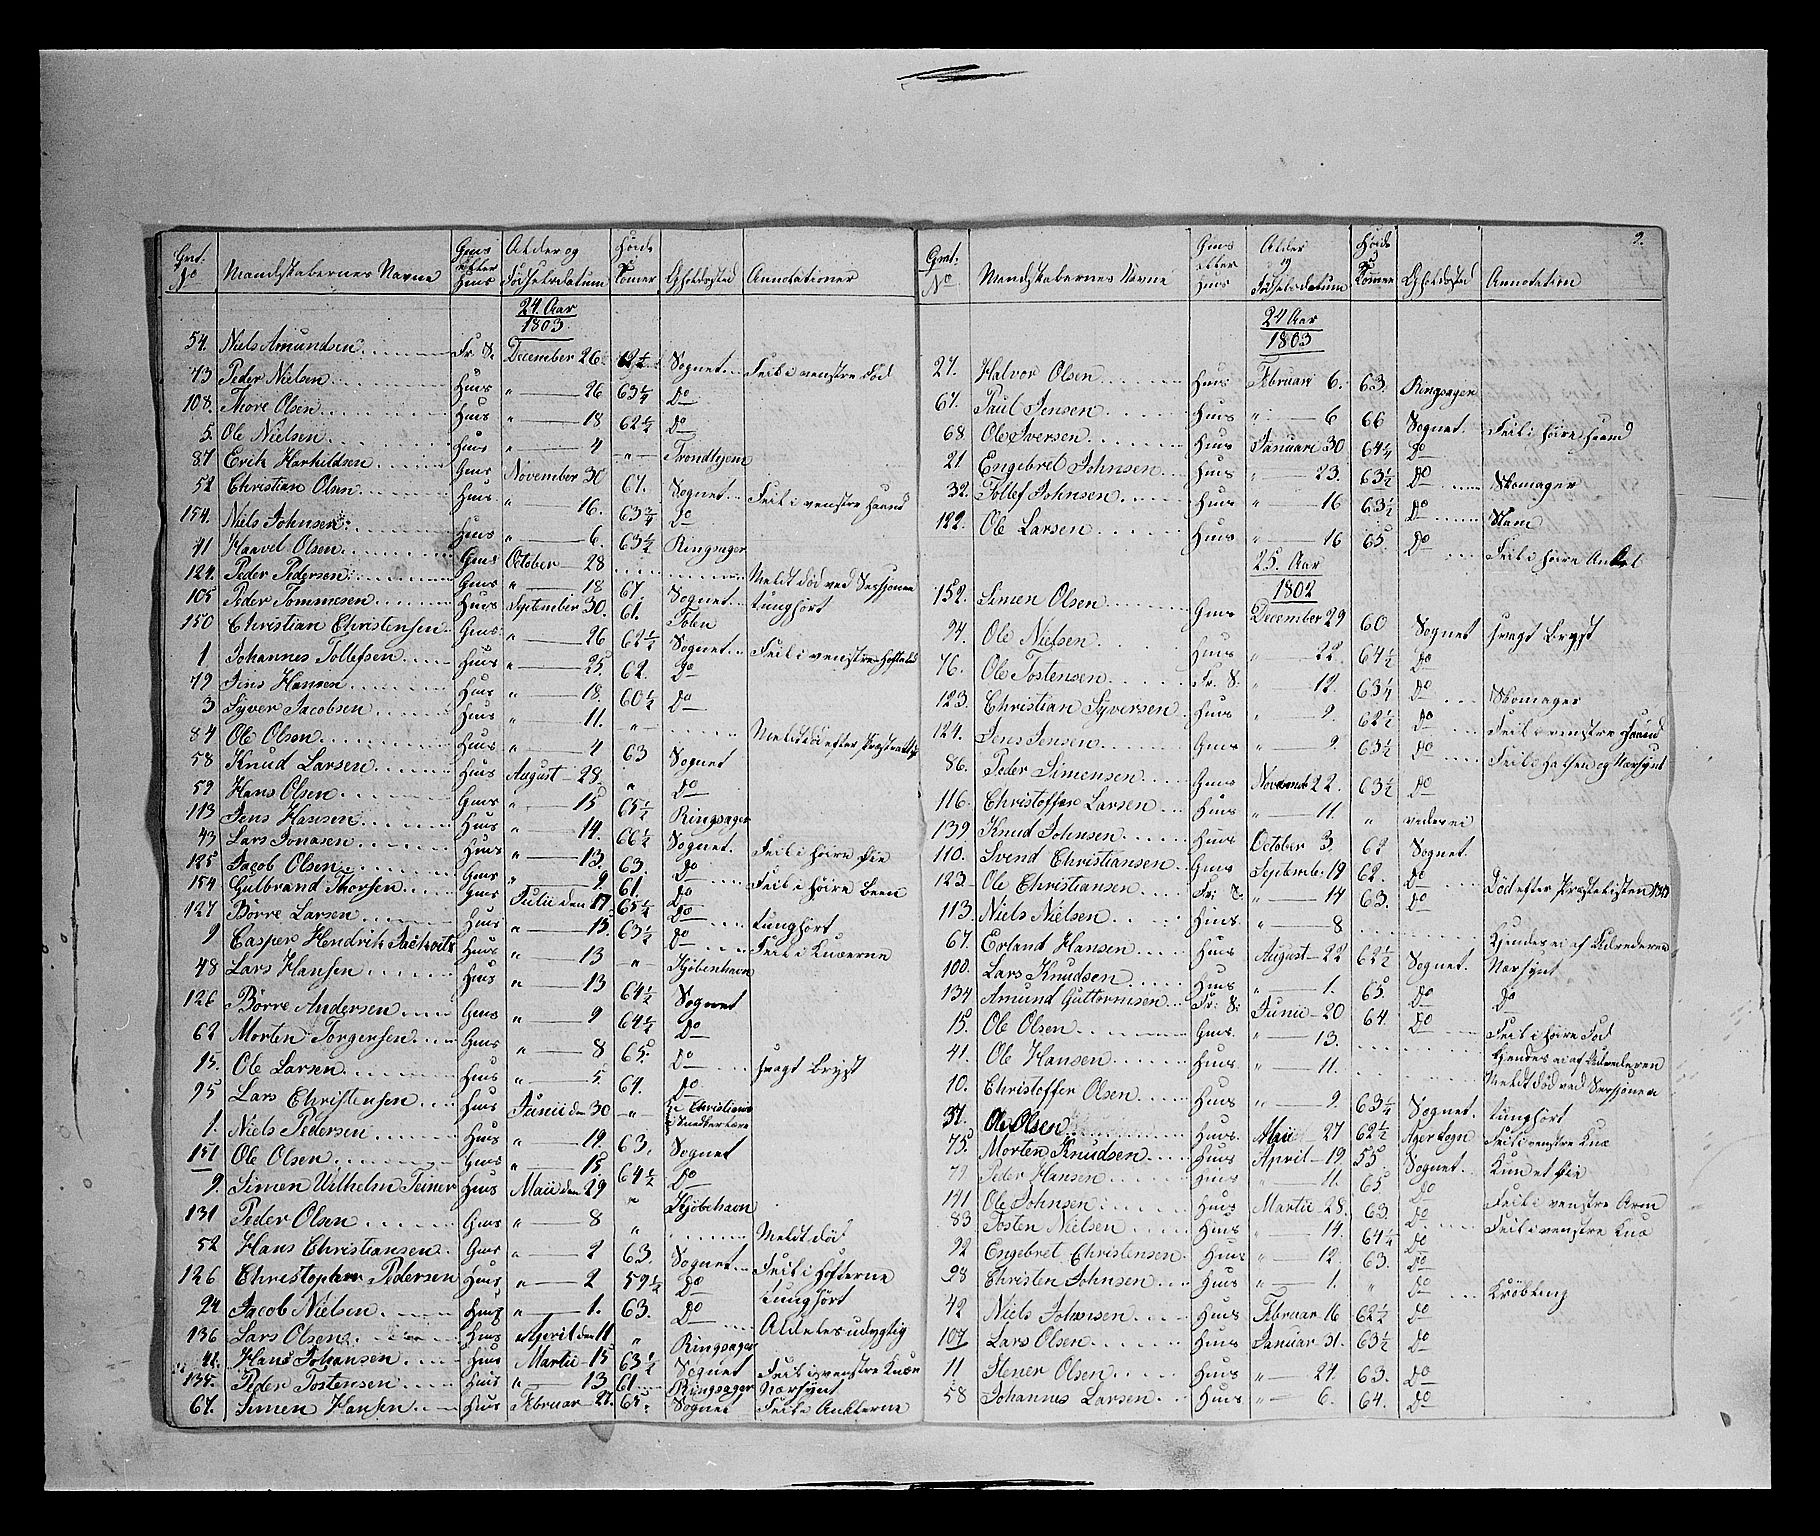 9.
Grd. No Mandskabernes Navne Huus Alder og Fødselsdatum Høide Tomer Opholdssted Annotationer
24 Aar
1803
54. Niels Amundsen Fr. S. December 26 Sognet Feil i venstre Fod
73 Peder Nielsen Huus " 26 63¼ Do
108. Thore Olsen Huus " 18 62½ Do
5. Ole Nielsen Huus " 4 " Trondhjem
87 Erik Harhildsen Huus November 30 67. Sognet Feil i venstre Haand
52 Christian Olsen Huus " 16. 63¾ Do
154. Niels Johnsen Huus " 6. 63½ Ringsager
41 Haavel Olsen Huus October 28 Meldt død ved Sessionen
124. Peder Pedersen Huus " 18 67. Sognet tunghørt
105 Peder Tommesen Huus September 30. 61. Foln
150 Christian Christensen Huus " 26 62½ Sognet Feil i venstre Hofteled
1 Johannes Tollefsen Huus " 25 62. Do
79 Jens Hansen Huus " 18. 60½ Do
3 Syver Jacobsen Huus " 11. " Meldt død efter Præsteattest
84 Ole Olsen Huus " 4 63 Sognet
58 Knud Larsen Huus August 28. " Do
59 Hans Olsen Huus " 15 65½ Ringsager
113 Jens Hansen Huus " 14. 66½ Sognet Feil i høire Øie
43 Lars Jonasen Huus " 13 63. Do
125 Jacob Olsen Huus " 9. 61. Do Feil i høire Been
154 Gulbrand Thorsen Huus Julii den 17 65½ Do
127 Börre Larsen Huus " 15 63½ Do tunghørt
9 Casper Hendrik Huus " 13 " Kjøbenhavn Feil i Knæerne
48 Lars Hansen Huus " 13 64½ Sognet
126 Börre Andersen Huus " 9 64½ Do
62 Morten Torgersen Huus " 8 65 Do svagt Bryst
15. Ole Larsen Huus " 5. 64. Do
95 Lars Christensen Huus Junii den 30 " Christiania
1. Niels Pedersen Huus " 19. 63. Sognet
151 Ole Olsen Huus " 15. 64½ Do
9. Simen Wilhelm Teiner Huus Maii den 29 " Kjøbehavn
131 Peder Olsen Huus " 8 " Meldt død
52 Hans Christiansen Huus " 2 63. Sognet Feil i Hofterne
126 Christopher Pedersen Huus " 2 59½ Do tunghørt
24 Jacob Nielsen Huus " 1. 63. Do Aldeles udygtig
136 Lars Olsen Huus April den 11 " Ringsager
42. Hans Johansen Huus Martii 15 63½ Sognet Feil i venstre Knæe
135. Peder Tostensen Huus " 13 61 Ringsager Nærsynt
67. Simen Hansen Huus Februar 27. 65 Sognet Feil i Anklerne
Grd. No Mandskabernes Navne Huus Alder og Fødselsdatum Høide Tomer Opholdssted Annotation
24 Aar
1803
27. Halvor Olsen Huus Februari 6. 63 Ringsager
67. Paul Jensen Huus " 6 66 Sognet. Feil i høire Haand
68. Ole Iversen Huus Januari 30 64¼ Do
21 Engebret Johnsen Huus " 23. 63½ Do Skomager
32. Tollef Johnsen Huus " 16 63½ Do Stam
122. Ole Larsen Huus " 16 65. Do Feil i høire Ankel
25. Aar
1802
152. Simen Olsen Huus December 29 60 Sognet svagt Bryst
94. Ole Nielsen Huus " 22 64½ Do
76. Ole Tostensen Fr. S. " 12. 63¼ Do Skomager
123. Christian Syversen Huus " 9. 62½ Do Feil i venstre Haand
124. Jens Jensen Huus " 9. 63½ Do Feil i Halsen og Nærsynt
86. Peder Simensen Huus November 22. 63½ Do
116. Christoffer Larsen Huus " 11. "
139 Knud Johnsen Huus October 3 62 Sognet
110. Svend Christiansen Huus September 19 62. Do Død efter Præstelisten
123 Ole Christiansen Fr. " 14 63. Do
113. Niels Nielsen Huus " 8 Kjendes ei af
67. Erland Hansen Huus August 22 62½ Sognet. Nærsynt
100. Lars Knudsen Huus " 1. 65. Do Do
134 Amund Guttormsen Fr. S. Junii 20 64. Do Feil i høire Fod
15. Ole Olsen Huus " 13. Kjendes ei af
41. Ole Hansen Huus " 11. Meldt død ved Sessionen
10. Christoffer Olsen Huus " 9. 63¼ Sognet tunghørt
37. Ole Olsen Huus Maii 27 62½ Agersogn Feil i venstre Knæ
75. Morten Knudsen Huus April 19 55. Sognet Kun et Øie
77 Peder Hansen Huus " 11. 65. Do
141 Ole Johnsen Huus Martii 28. 63. Do Feil i venstre Arm
83 Tosten Nielsen Huus " 14. 64¼ Do Feil i venstre Knæ
92 Engebret Christensen Huus " 12. 63. Do
98 Christen Johnsen Huus " 1. " Do Krøbling
42 Niels Johnsen Huus Februar 16 62½ Do
107 Lars Olsen Huus Januar 31. 63½ Do
11 Stener Olsen Huus " 24. 63. Do
58 Johannes Larsen Huus " 6. 64. Do